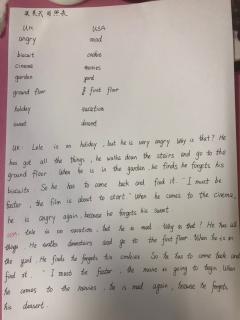 英美式对照表
UK USA
angry mad
biscuit cookie
cinema movies
garden yard
ground floor first floor
holiday vacation
sweet desert
UK: Lele is on holiday, but he is very angry. Why is that? He
has got all the things, he walks down the stairs and go to the
ground floor. When he is in the garden, he finds he forgets his
biscuits. So he has to come back and find it. "I must be
faster, the film is about to start." When he comes to the cinema,
he is angry again, because he forgets his sweet.
USA: Lele is on vacation, but he is mad. Why is that? He has all
things. He walks downstairs and go to the first floor. When he is in
the yard. He finds he forgets his cookies. So he has to come back and
find it. "I must be faster, the movie is going to begin. When
he comes to the movies, he is mad again, because he forgets
his dessert.